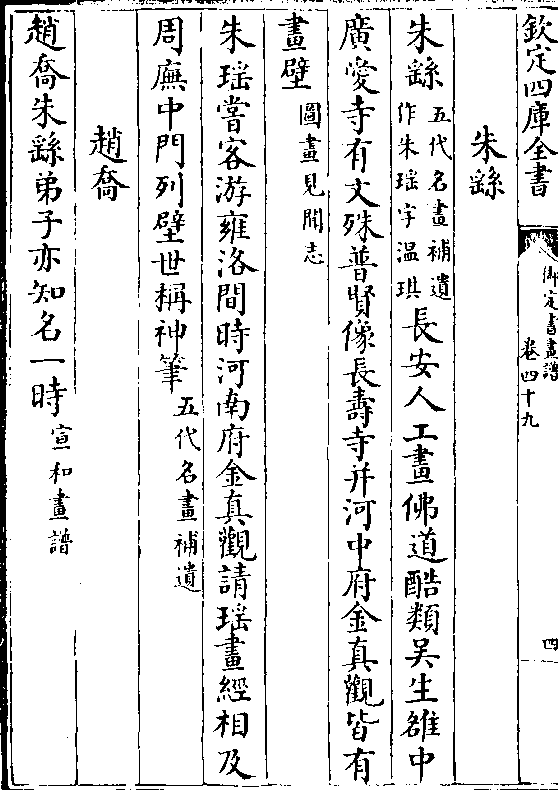 欽定四庫全書
御定書畫譜
卷四十九
四
朱繇
朱繇五代名畫補遺作朱瑶字温琪長安人工畫佛道酷類吴生雒中
廣愛寺有文殊普賢像長壽寺并河中府金真觀皆有
畫壁圖畫見聞志
朱瑶嘗客游雍洛間時河南府金真觀請瑶畫經相及
周廡中門列壁世稱神筆五代名畫補遺
趙喬
趙喬朱繇弟子亦知名一時宣和畫譜